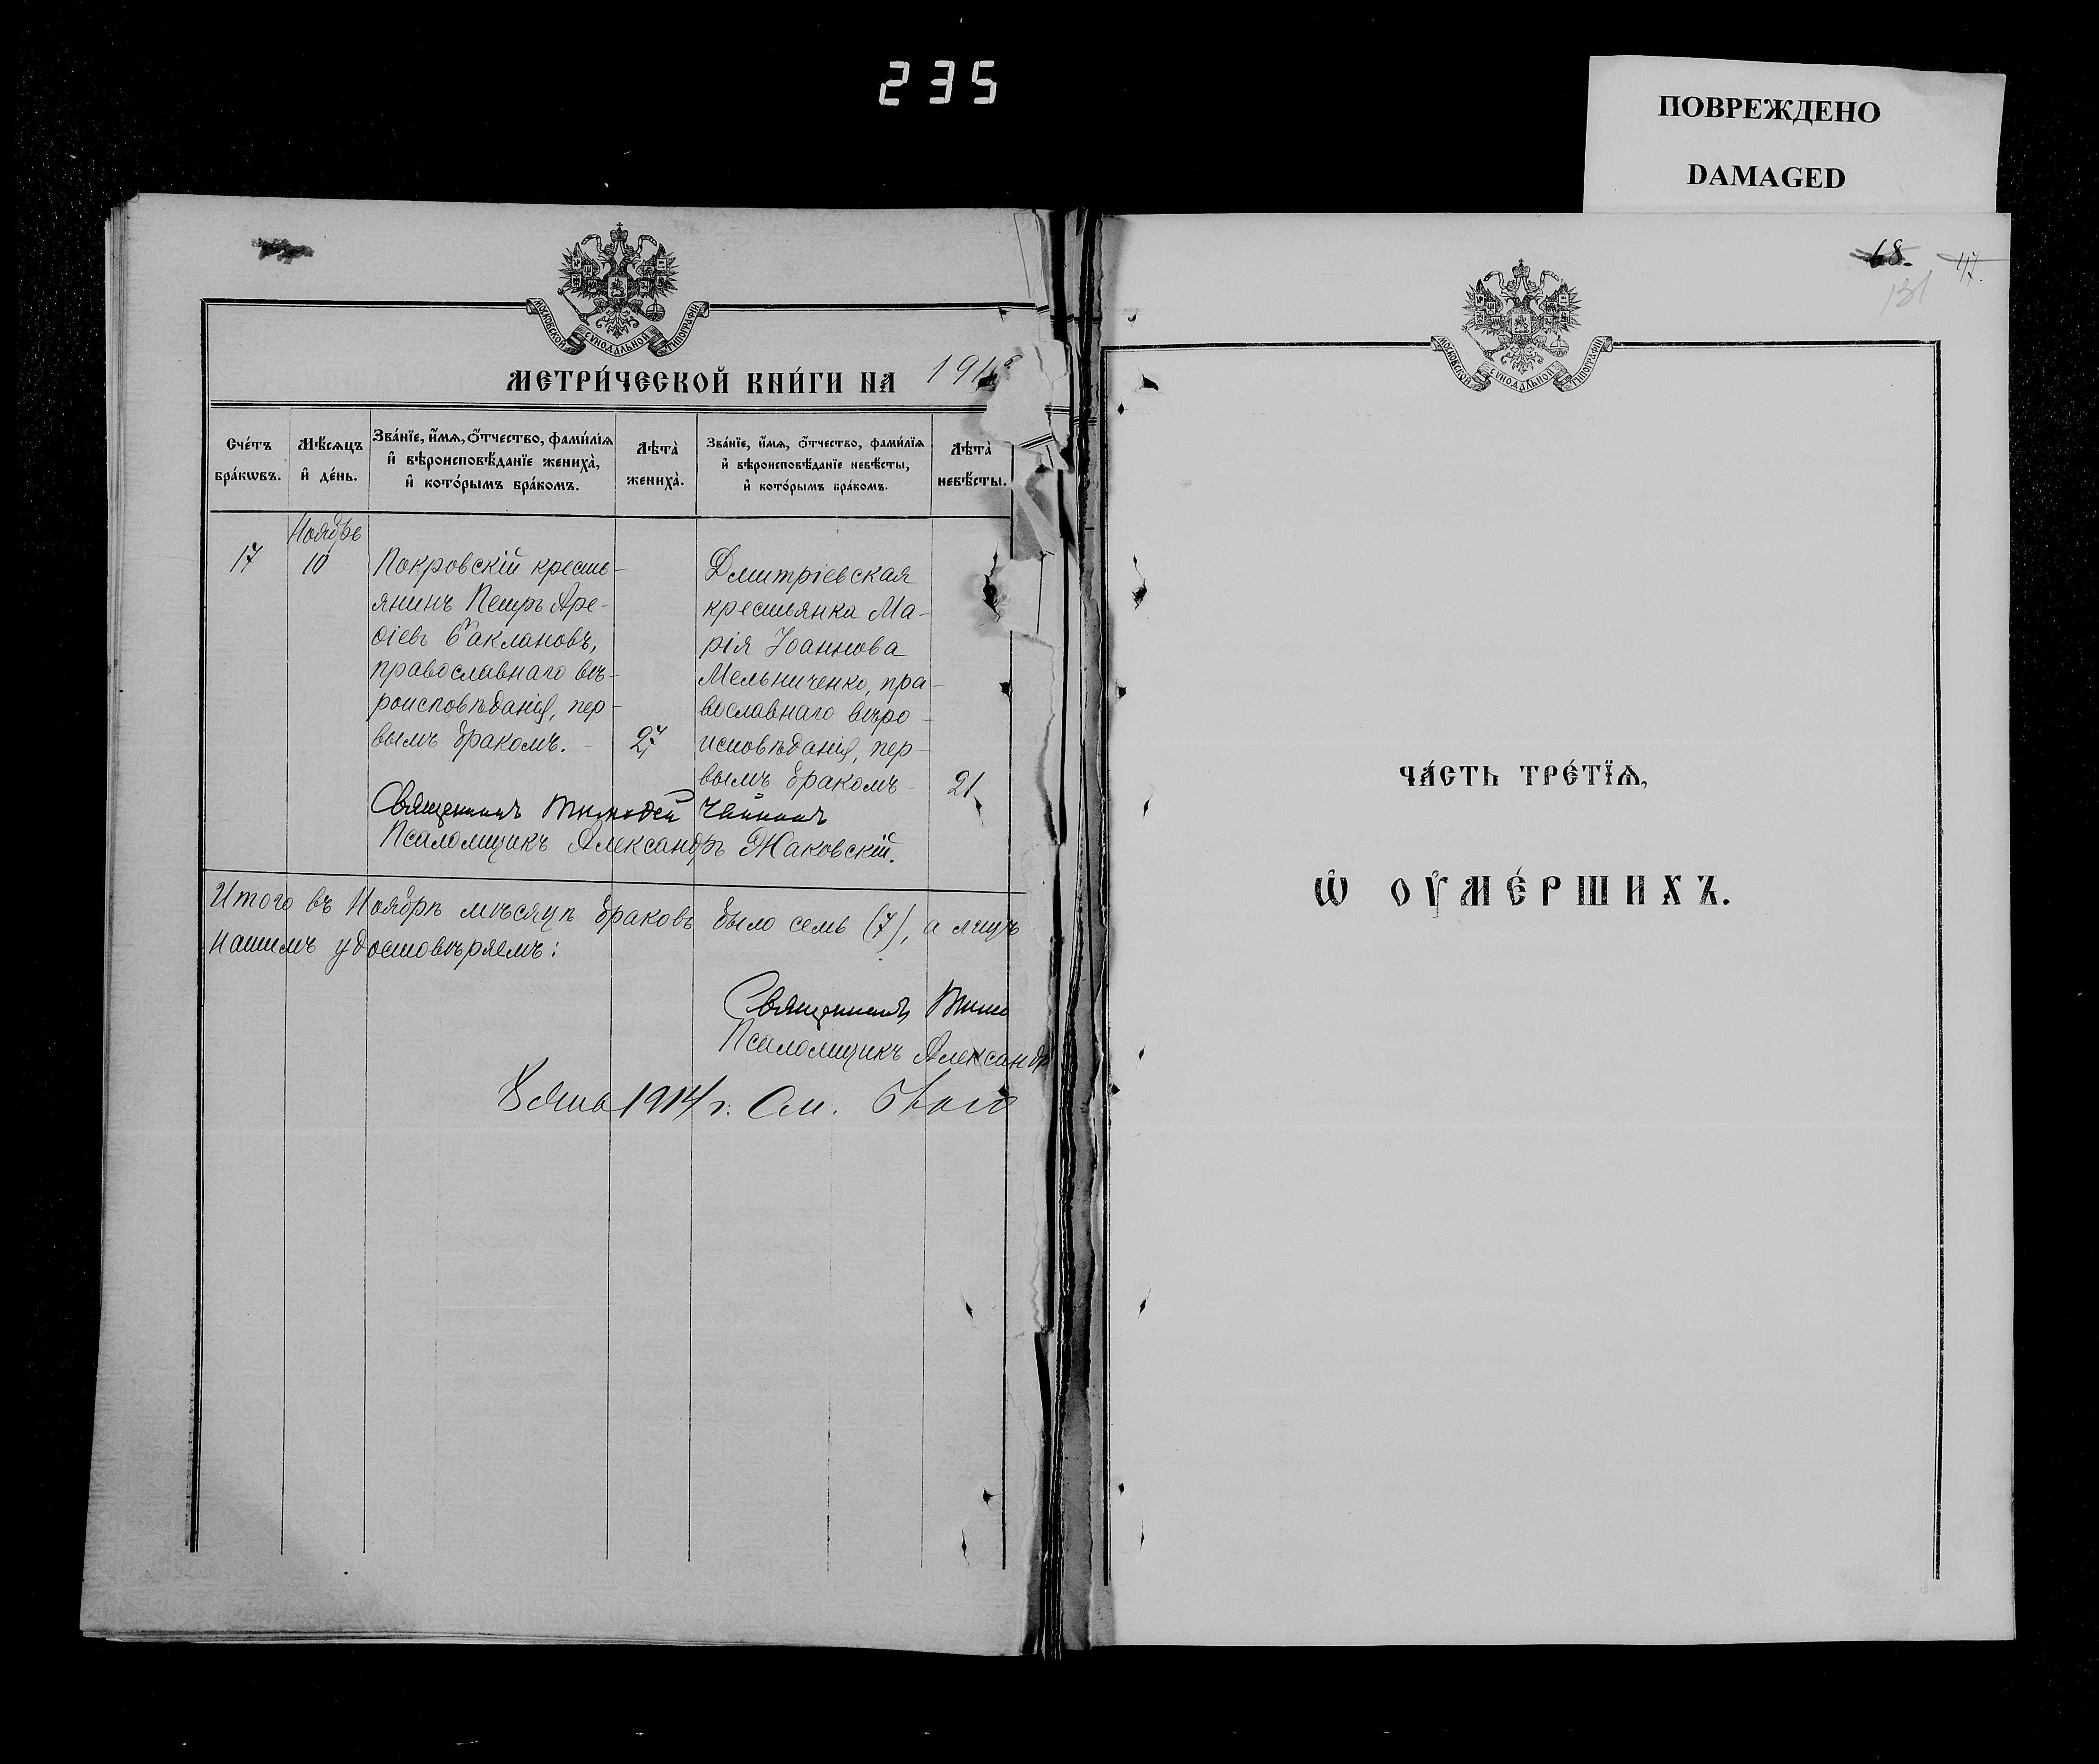 235
ПОВРЕЖДЕНО
DAMAGED
МОСКОВСКОЙ СѴНОДАЛЬНОЙ ТИПОГРАФІИ
МЕТРИ́ЧЕСКОЙ КНИ́ГИ НА 191
Сче́тъ бра́кѡвъ.
Мѣ́сяцъ и҆ де́нь.
Зва́нїе, и҆́мѧ, ѻ҆́тчество, фами́лїѧ
и҆ вѣроисповѣ́данїе жениха̀,
и҆ кото́рымъ бра́комъ.
Лѣта̀ жениха̀.
Зва́нїе, и҆́мѧ, ѻ҆́тчество, фами́лїѧ
и҆ вѣроисповѣ́данїе невѣ́сты,
и҆ кото́рымъ бра́комъ.
Лѣта̀ невѣ́сты.
17
Ноябрь
10
Покровскій кресть-
янинъ Петръ Аре-
фіевъ Баклановъ,
православнаго вѣ-
роисповѣданія, пер-
вымъ бракомъ. -
27
Дмитріевская
крестьянка Ма-
рія Іоаннова
Мельниченко, пра-
вославнаго вѣро-
исповѣданія, пер-
вымъ бракомъ
21
Священникъ Тимофей
Псаломщикъ Александръ Жаковскій.
Итого въ Ноябрѣ мѣсяцѣ браковъ было семь (7), а лицъ
нашимъ удостовѣряемъ:
Священникъ Тимо
Псаломщикъ Александр
1914 г.
68.
47.
131
МОСКОВСКОЙ СѴНОДАЛЬНОЙ ТИПОГРАФІИ
ЧА́СТЬ ТРЕ́ТЇѦ,
Ѡ҆ ОУ҆МЕ́РШИХЪ.